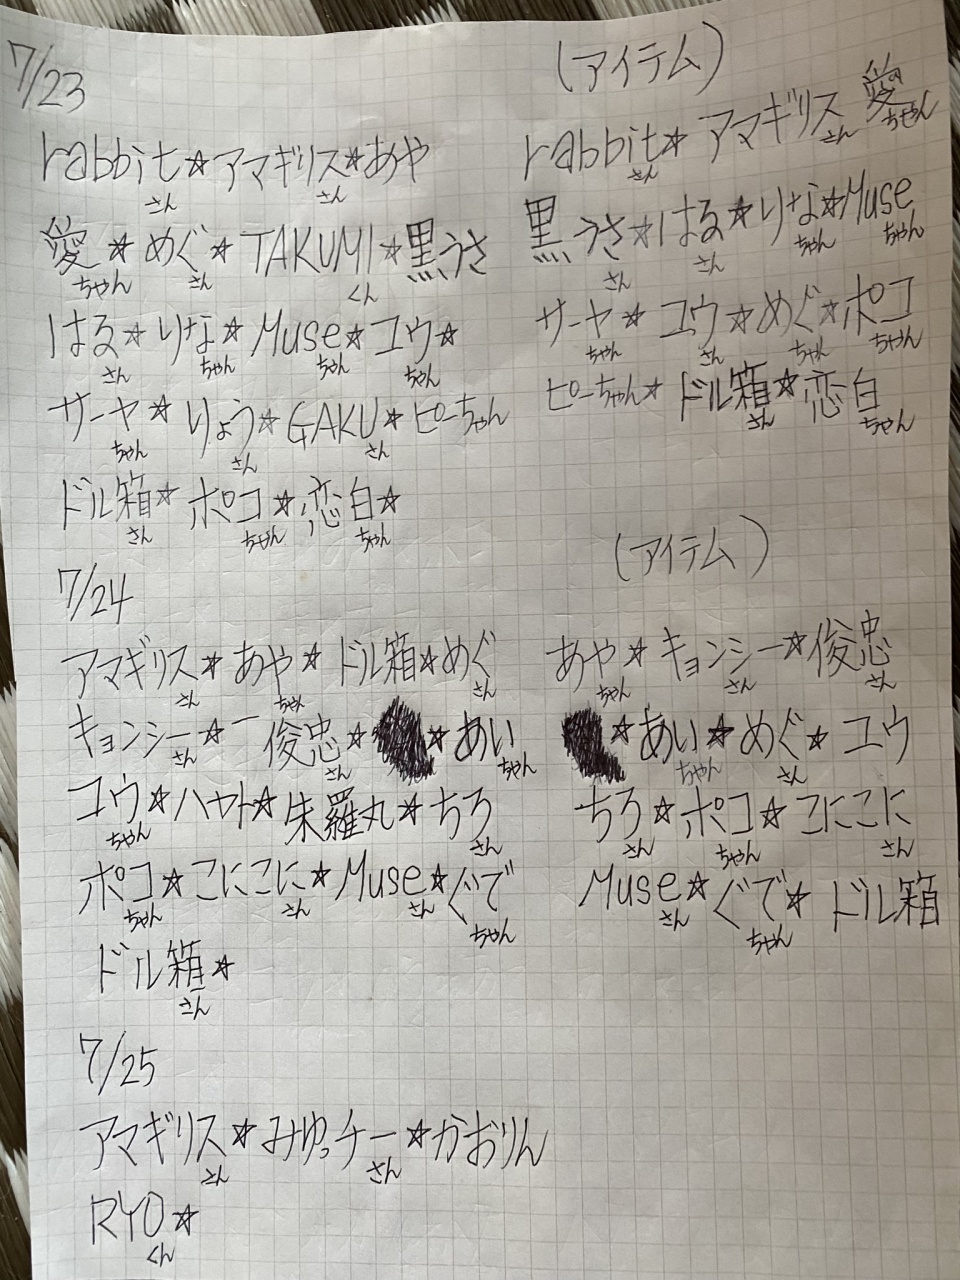 7/23
rabbit☆アマギリス☆あや
さん さん
愛☆めぐ☆TAKUMI☆黒うさ
ちゃん さん くん
はる☆りな☆Muse☆ユウ☆
さん ちゃん ちゃん ちゃん
サーヤ☆りょう☆GAKU☆ピーちゃん
ちゃん さん さん
ドル箱☆ポコ☆恋白☆
さん ちゃん ちゃん
(アイテム)
rabbit☆アマギリス 愛
さん さん ちゃん
黒うさ☆はる☆りな☆Muse
さん さん ちゃん ちゃん
サーヤ☆ユウ☆めぐ☆ポコ
ちゃん さん ちゃん ちゃん
ピーちゃん☆ドル箱☆恋白
さん ちゃん
7/24
アマギリス☆あや☆ドル箱☆めぐ
さん ちゃん さん
キョンシー☆ー俊忠☆☆あい
さん さん ちゃん
ユウ☆ハヤト☆朱羅丸☆ちろ
ちゃん さん
ポコ☆こにこに☆Muse☆ぐで
ちゃん さん さん ちゃん
ドル箱☆
さん
(アイテム)
あや☆キョンシー☆俊忠
ちゃん さん さん
☆あい☆めぐ☆ユウ
ちゃん さん
ちろ☆ポコ☆こにこに
さん ちゃん さん
Muse☆ぐで☆ドル箱
さん ちゃん
7/25
アマギリス☆みゆっチー☆かおりん
さん さん
RYO☆
くん